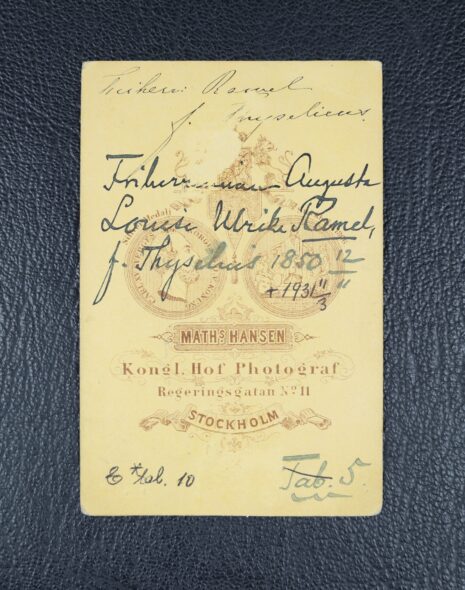 Friherri Ramel
f. Thyselius.
Friherrinnan Augusta
Louise Ulrike Ramel,
f. Thyselius 1850 12/11
+ 1931 11/3
Medalj
MATHS HANSEN
Kongl. Hof Photograf
Regeringsgatan No 11
STOCKHOLM
Tab. 10
Tab. 5.